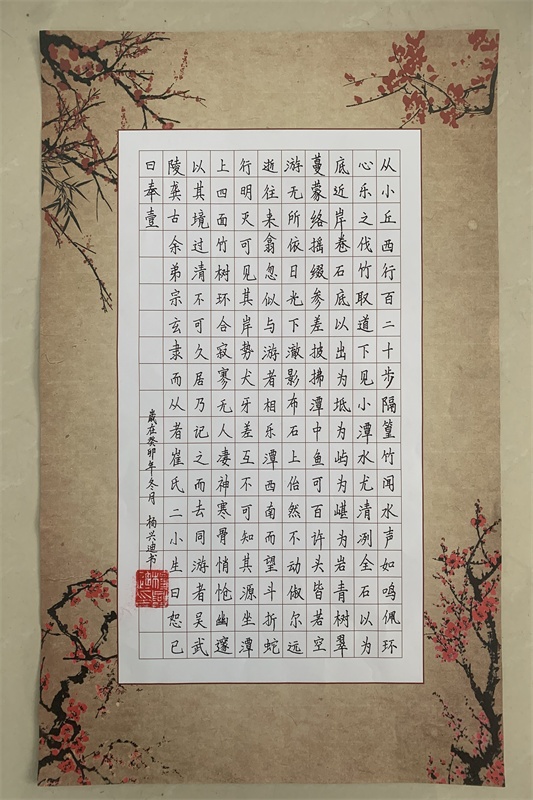 从小丘西行百二十步隔篁竹闻水声如鸣佩环
心乐之伐竹取道下见小潭水尤清冽全石以为
底近岸卷石底以出为坻为屿为嵁为岩青树翠
蔓蒙络摇缀参差披拂潭中鱼可百许头皆若空
游无所依日光下澈影布石上佁然不动俶尔远
逝往来翕忽似与游者相乐潭西南而望斗折蛇
行明灭可见其岸势犬牙差互不可知其源坐潭
上四面竹树环合寂寥无人凄神寒骨悄怆幽邃
以其境过清不可久居乃记之而去同游者吴武
陵龚古余弟宗玄隶而从者崔氏二小生曰恕已
曰奉壹
歲在癸卯年冬月 兴迪书